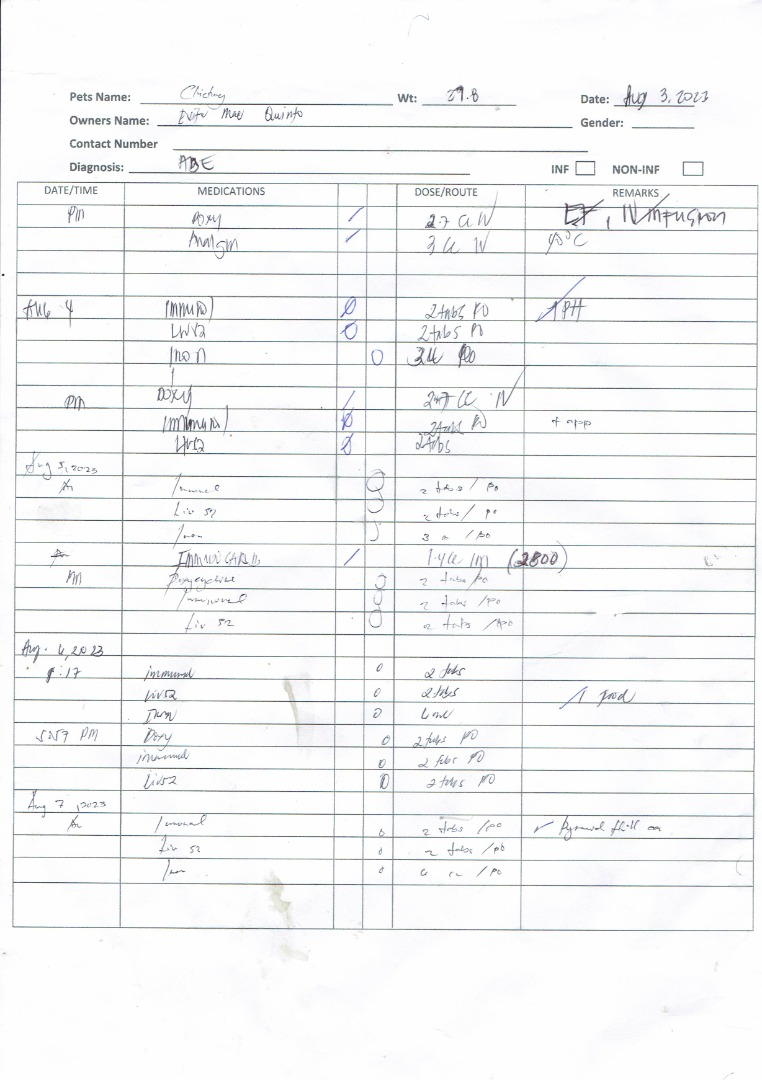 Pets Name: Wt: 29.8 Date: Aug 3, 2023
Owners Name: Mae Quinto Gender:
Contact Number
Diagnosis: ABE INF NON-INF
DATE/TIME MEDICATIONS DOSE/ROUTE REMARKS
PM Doxy 2.7 cc IV , IV infusion
Analgin 3 cc IV 40°C
Aug 4 Immunol 2 tabs PO
LIV52 2 tabs PO
Iron 3cc PO
PM Doxy 2.7 cc IV
Immunol 2 tabs PO + app
LIV52 2 tabs
Aug 5, 2023
Am Immunol 2 tabs / po
Liv 52 2 tabs / po
Iron 3 cc / po
1.4cc IM (2800)
PM Doxycycline 2 tabs/po
Immunol 2 tabs /po
Liv 52 2 tabs /po
Aug. 6, 2023
:17 immunol 2 tabs
Liv52 2 tabs food
Iron
PM Doxy 2 tabs PO
immunol 2 tabs PO
Liv52 2 tabs PO
Aug 7, 2023
Am Immunol 2 tabs /po
Liv 52 2 tabs /po
Iron cc /po